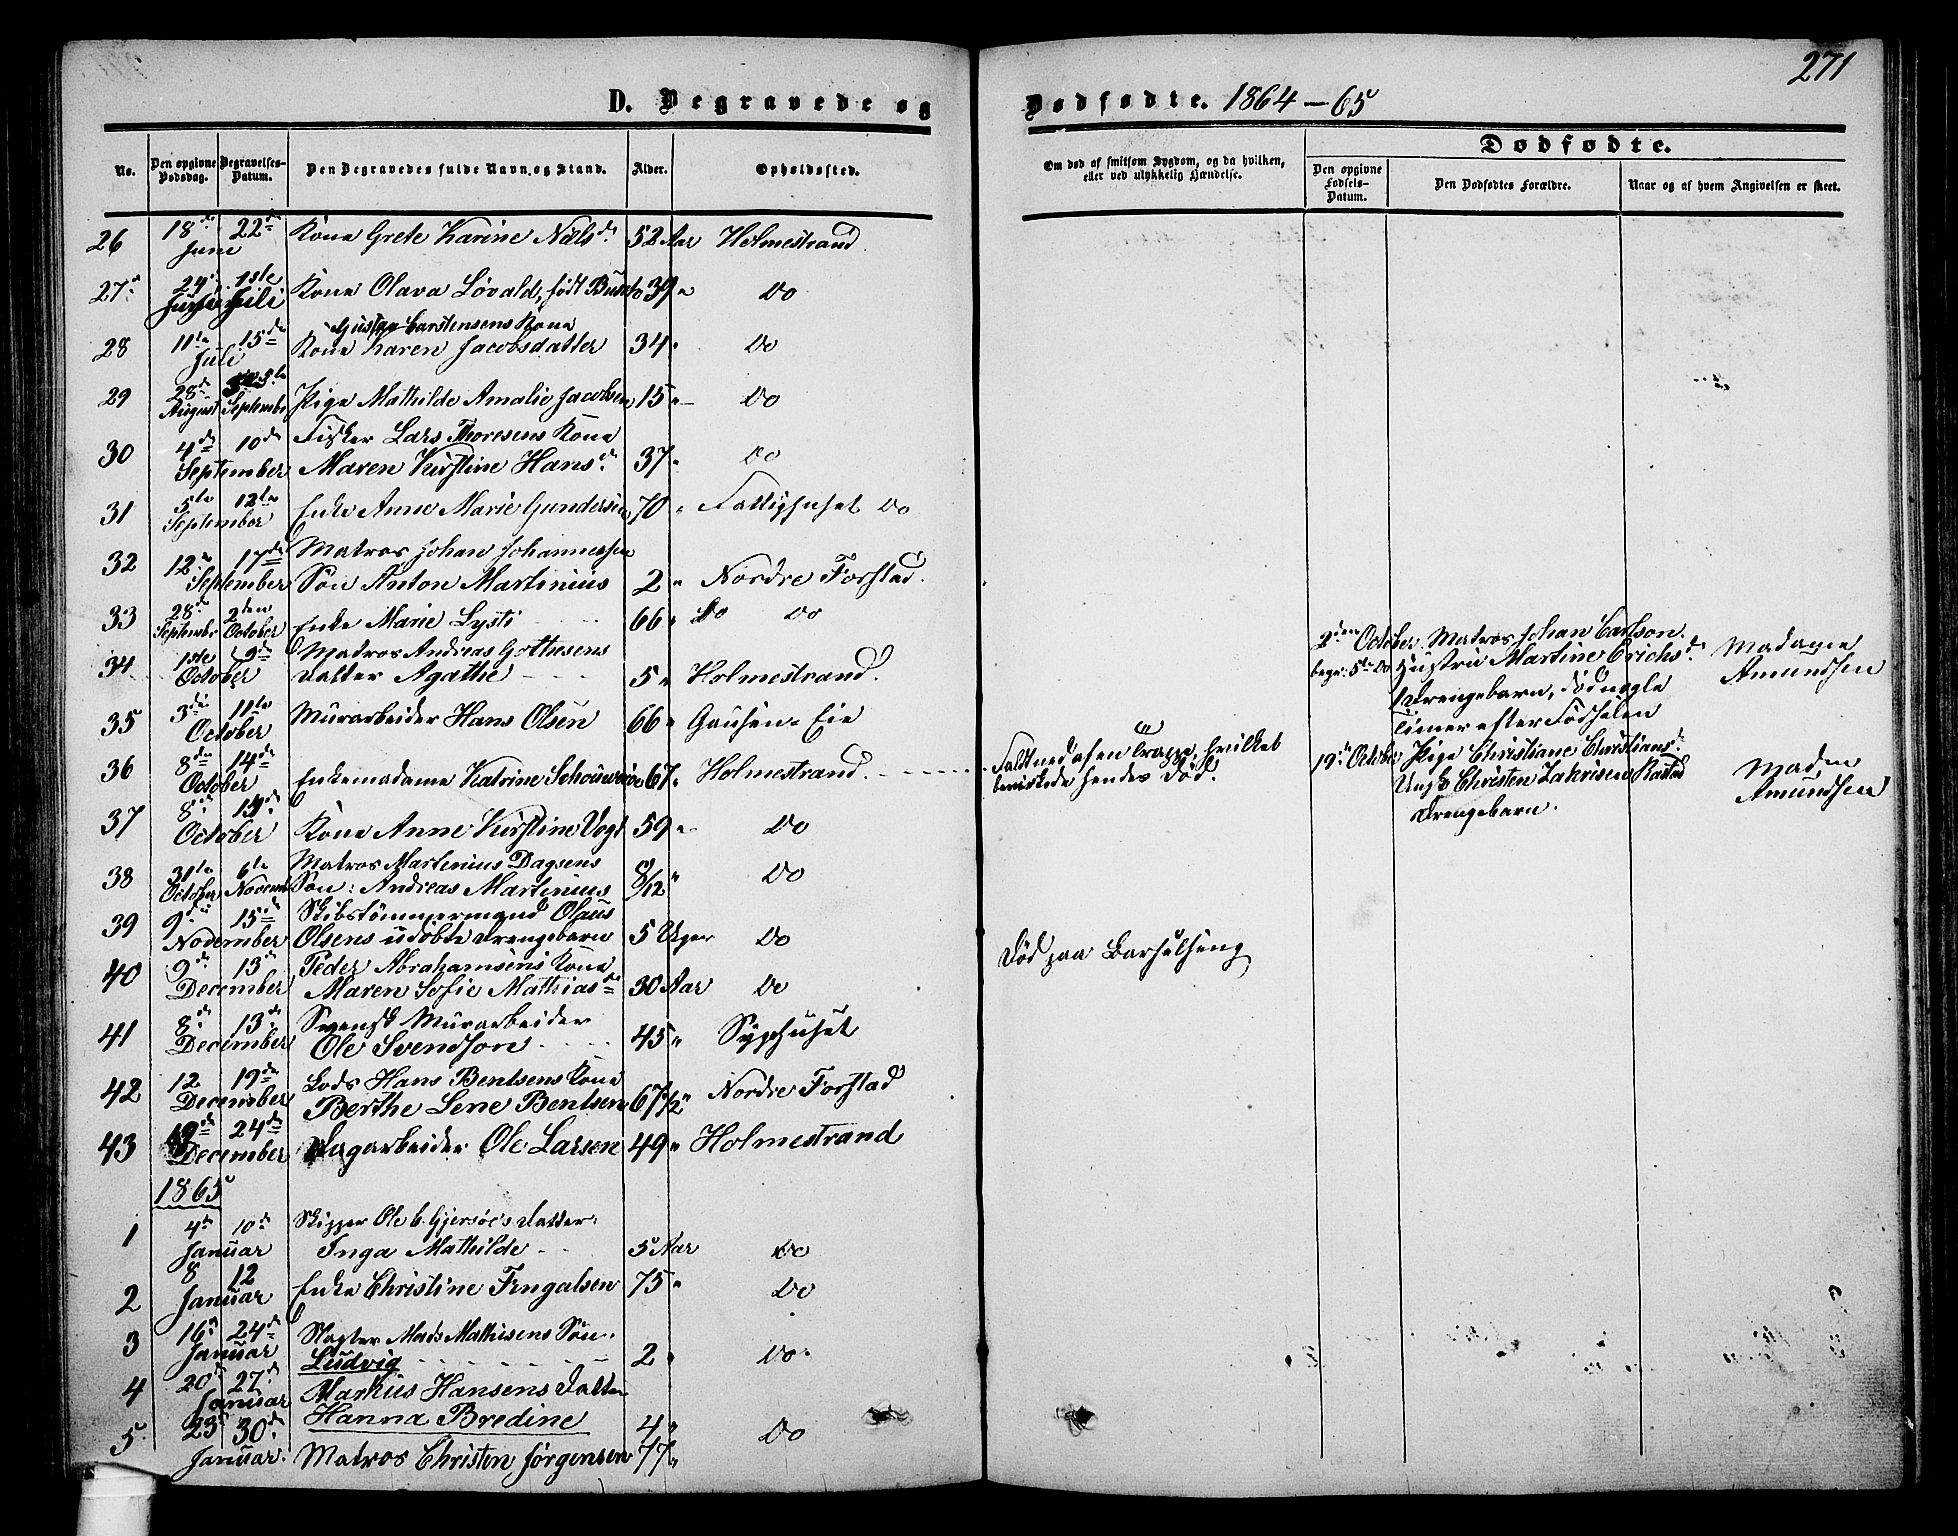 271
D. Begravede og Dødfødte. 1864-65
No. | Den opgivne Dødsdag. | Begravelses-Datum. | Den Begravedes fulde Navn og Stand. | Alder. | Opholdssted. | Om død af smitsom Sygdom, og da hvilken, eller ved ulykkelig Hændelse. | Dødfødte. | Den opgivne Fødsels-Datum. | Den Dødfødtes Forældre. | Naar og af hvem Angivelsen er skeet.
26 | 18de Juni | 22de | Kone Grete Karine Nilsd. | 52 Aar | Holmestrand.
27 | 24 Juni | 1ste Juli | Kone Olava Løvald, født Busch | 39 " | Do
28 | 11te Juli | 15de | Gustav Carstensens Kone
Kone Karen Jacobsdatter | 34 " | Do
29 | 28de August | September | Pige Mathilde Amalie Jacobsen | 15 " | Do
30 | 4de September | 10de | Fisker Lars Thoresens Kone
Maren Kirstine Hansd. | 37 " | Do
31 | 5te September | 12te | Enke Anne Marie Gundersen | 70 " | Fattighuset Do
32 | 12te September | 17de | Matros Johan Johannessen
Søn Anton Martinius | 2 " | Nordre Forstad.
33 | 28de September | 2den October | Enke Marie Lysti | 66 " | Do Do
34 | 1ste October | 9de | Matros Andreas Gothesens
Datter Agathe | 5 " | Holmestrand.
2den October | Matros Johan Carlson.
begr. 5te Do | Hustru Martine Erichsd. | Madame
Drengebarn, død nogle | Amundsen
Timer efter Fødselen
35 | 3die October | 11te | Murarbeider Hans Olsen | 66 " | Gausen-Eie
36 | 8de October | 14de | Enkemadame Katrine | 67 " | Holmestrand. | Faldt ned af en Trappe, hvilket
bevirkede hendes Død.
19de October | Pige Christiane Christiansd.
Ungk. Christen Zakrisen | Madm
Drengebarn. | Amundsen
37 | 8de October | 15de | Kone Anne Kirstine Vogt | 59 " | Do
38 | 31te October | 6te Novemb | Matros Martenius Dagsens
Søn: Andreas Martinius | 8/12 " | Do
39 | 9de November | 15de | Skibstømmermand Olaus
Olsens udøbte Drengebarn | 5 Uger | Do
40 | 9de December | 13de | Peder Abrahamsens Kone
Maren Sofie Mathiasd. | 30 Aar | Do | Død paa Barselseng
41 | 8de December | 13de | Svensk Murarbeider
Ole Svendson | 45 " | Sygehuset
42 | 12 December | 19de | Lods Hans Bentsens Kone
Berthe Lene Bentsen | 67 1/2 " | Nordre Forstad
43 | 19de December | 24de | Dagarbeider Ole Larsen | 49 " | Holmestrand
1865
1 | 4de Januar | 10de | Skipper Ole C. Gjersøe's Datter:
Inga Mathilde | 5 Aar | Do
2 | 8 Januar | 12 | Enke Christine Fingalsen | 75 " | Do
3 | 16de Januar | 24de | Slagter Mads Mathisens Søn.
Ludvig | 2 " | Do.
4 | 20de Januar | 27de | Markus Hansens Datter
Hanna Bredine | 4 " | Do
5 | 23 Januar. | 30de | Matros Christen Jørgensen | 77 "